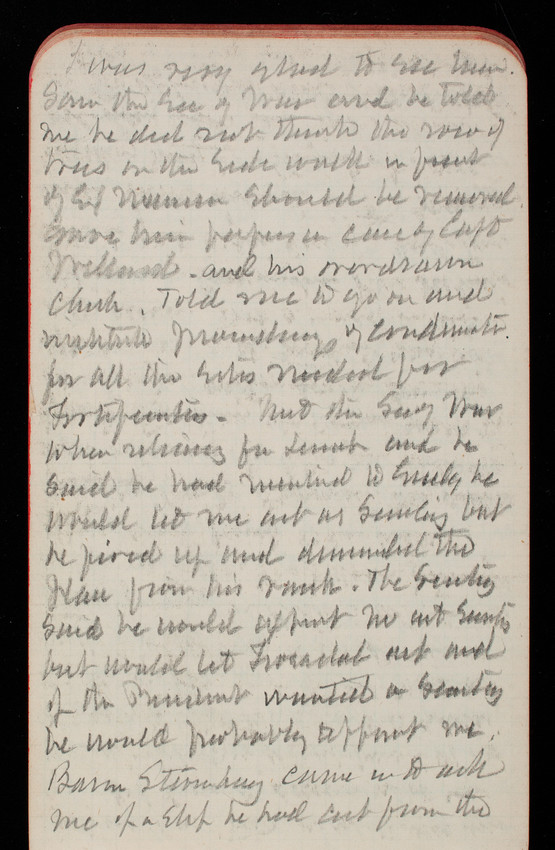 I was very glad to see him.
Saw the Sec of War and he told
me he did not think the row of
trees on the side walk in front
of should be removed
Gave him papers in case of Capt
and his overdrawn
check. Told me to go on and
institute proceedings of condemnation
for all the sites needed for
Fortifications. Met the Sec of War
when returning for lunch and he
said he had mentioned to he
would let me act as Secretary but
he up and demanded the
place from his rank. The Secretary
said he would appoint no act Secretary
but would let act and
if the President wanted a Secretary
he would probably appoint me.
Baron Sternburg came in to ask
me of a slip he had cut from the